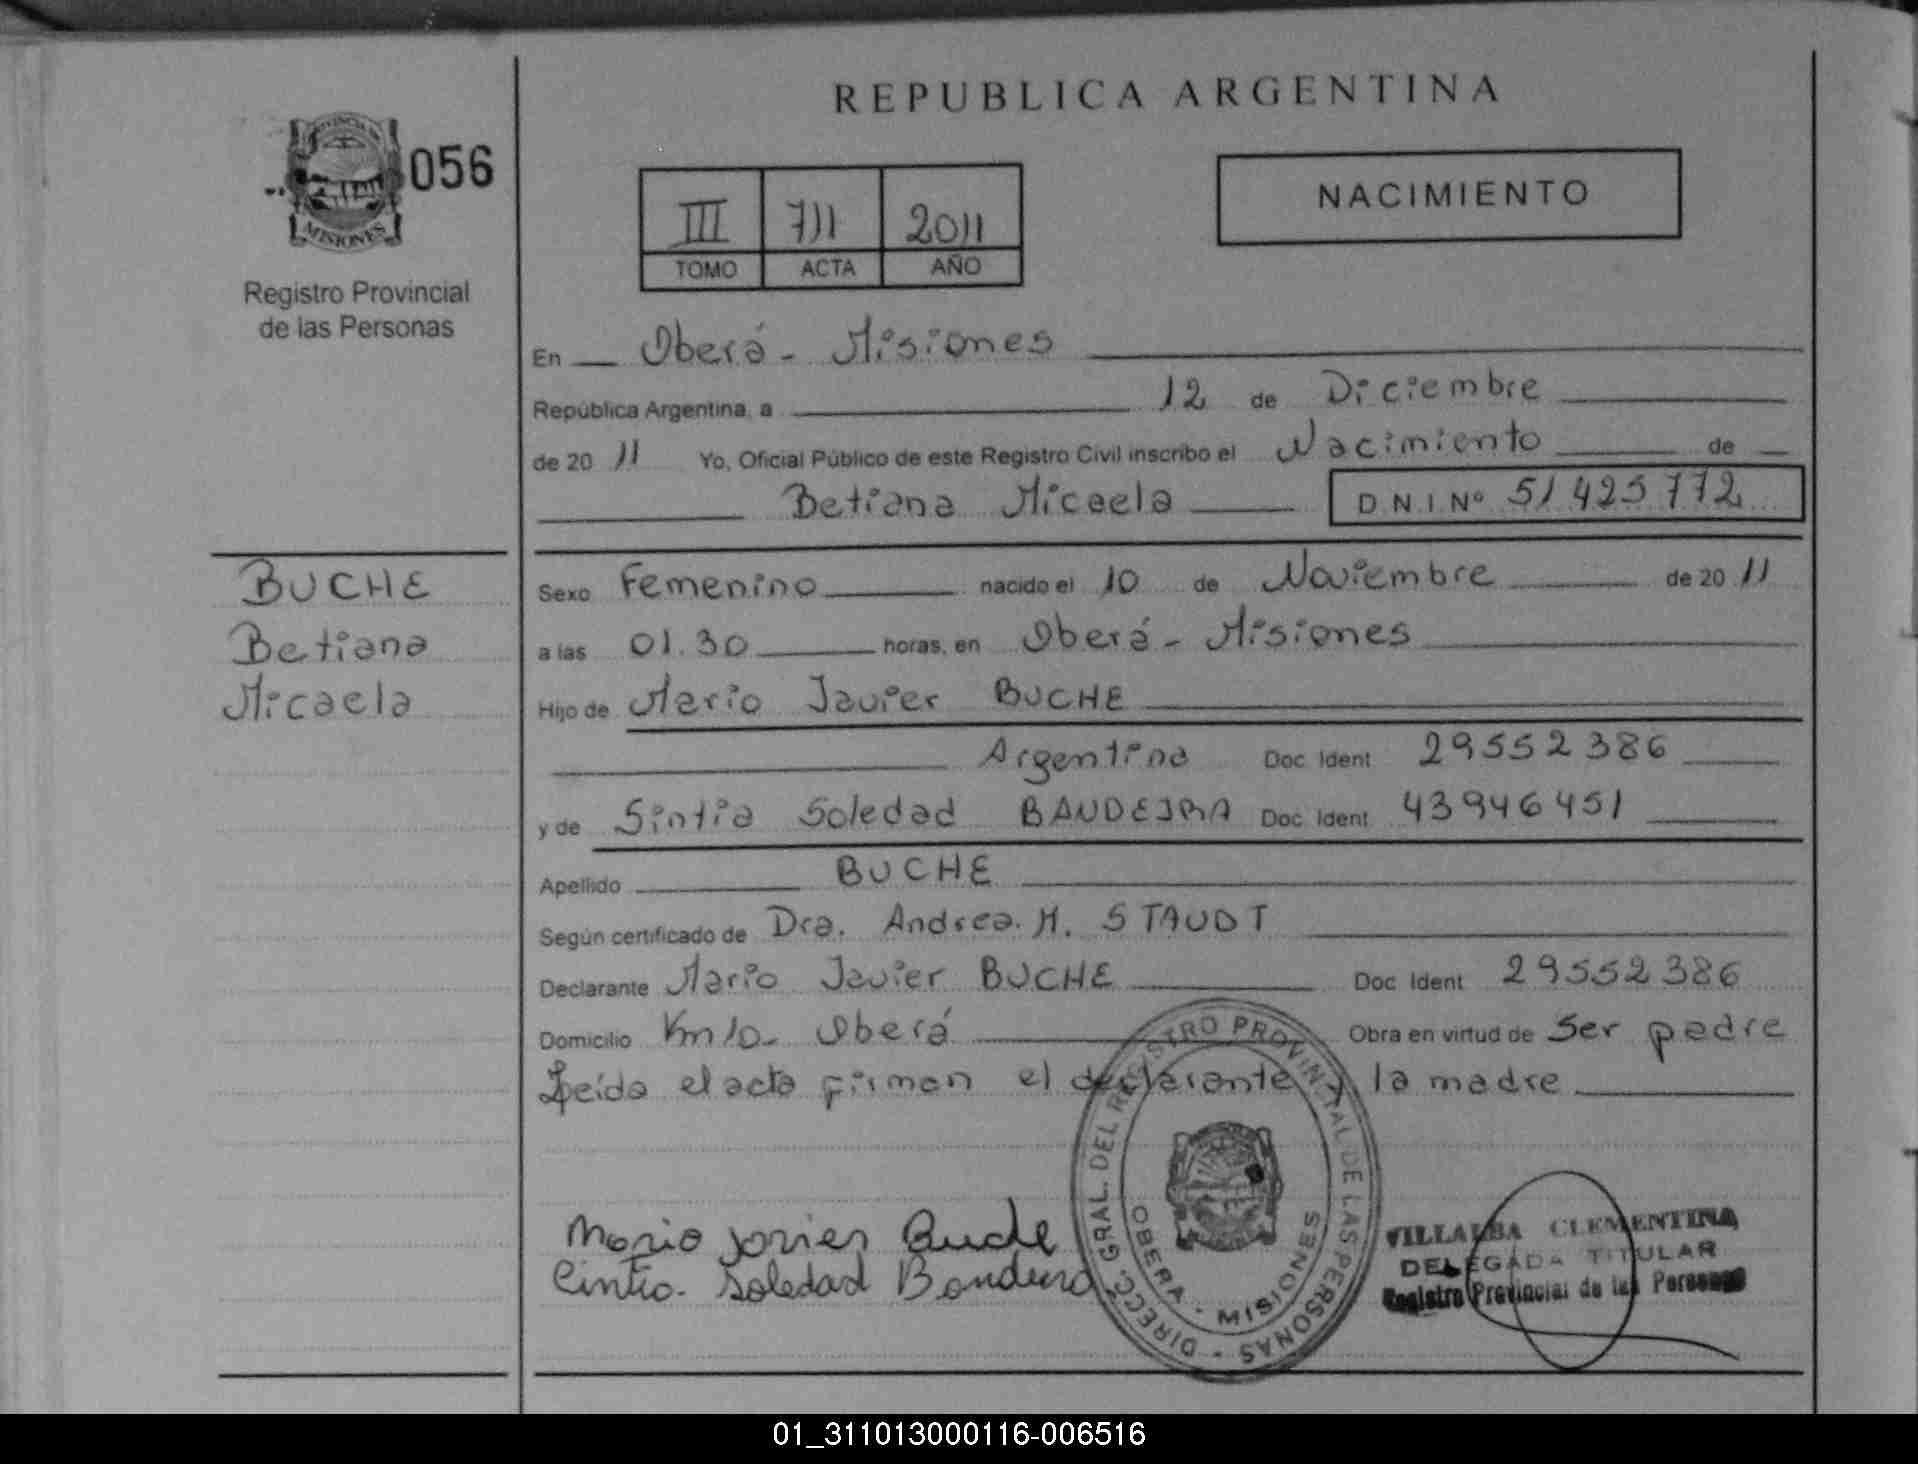 REPUBLICA ARGENTINA
PROVINCIA DE
MISIONES
056
Registro Provincial
de las Personas
III 711 2011
TOMO ACTA AÑO
NACIMIENTO
En Oberá - Misiones
República Argentina, a 12 de Diciembre
de 20 11 Yo, Oficial Público de este Registro Civil inscribo el Nacimiento de
Betiana Micaela D.N.I. Nº 51 425 772
BUCHE
Betiana
Micaela
Sexo Femenino nacido el 10 de Noviembre de 20 11
a las 01.30 horas, en Oberá - Misiones
Hijo de Mario Javier BUCHE
Argentina Doc. Ident 29552386
y de Sintia Soledad BANDEIRA Doc. Ident 43946451
Apellido BUCHE
Según certificado de Dra. Andrea. M. STAUDT
Declarante Mario Javier BUCHE Doc. Ident 29552386
Domicilio Km 10 - Oberá Obra en virtud de Ser padre
Leída el acta firman el declarante y la madre
Mario Javier Buche
Cintia Soledad Bandeira
DIRECC. GRAL. DEL REGISTRO PROVINCIAL DE LAS PERSONAS -
OBERA - MISIONES
VILLALBA CLEMENTINA
DELEGADA TITULAR
Registro Provincial de las Personas
01_311013000116-006516